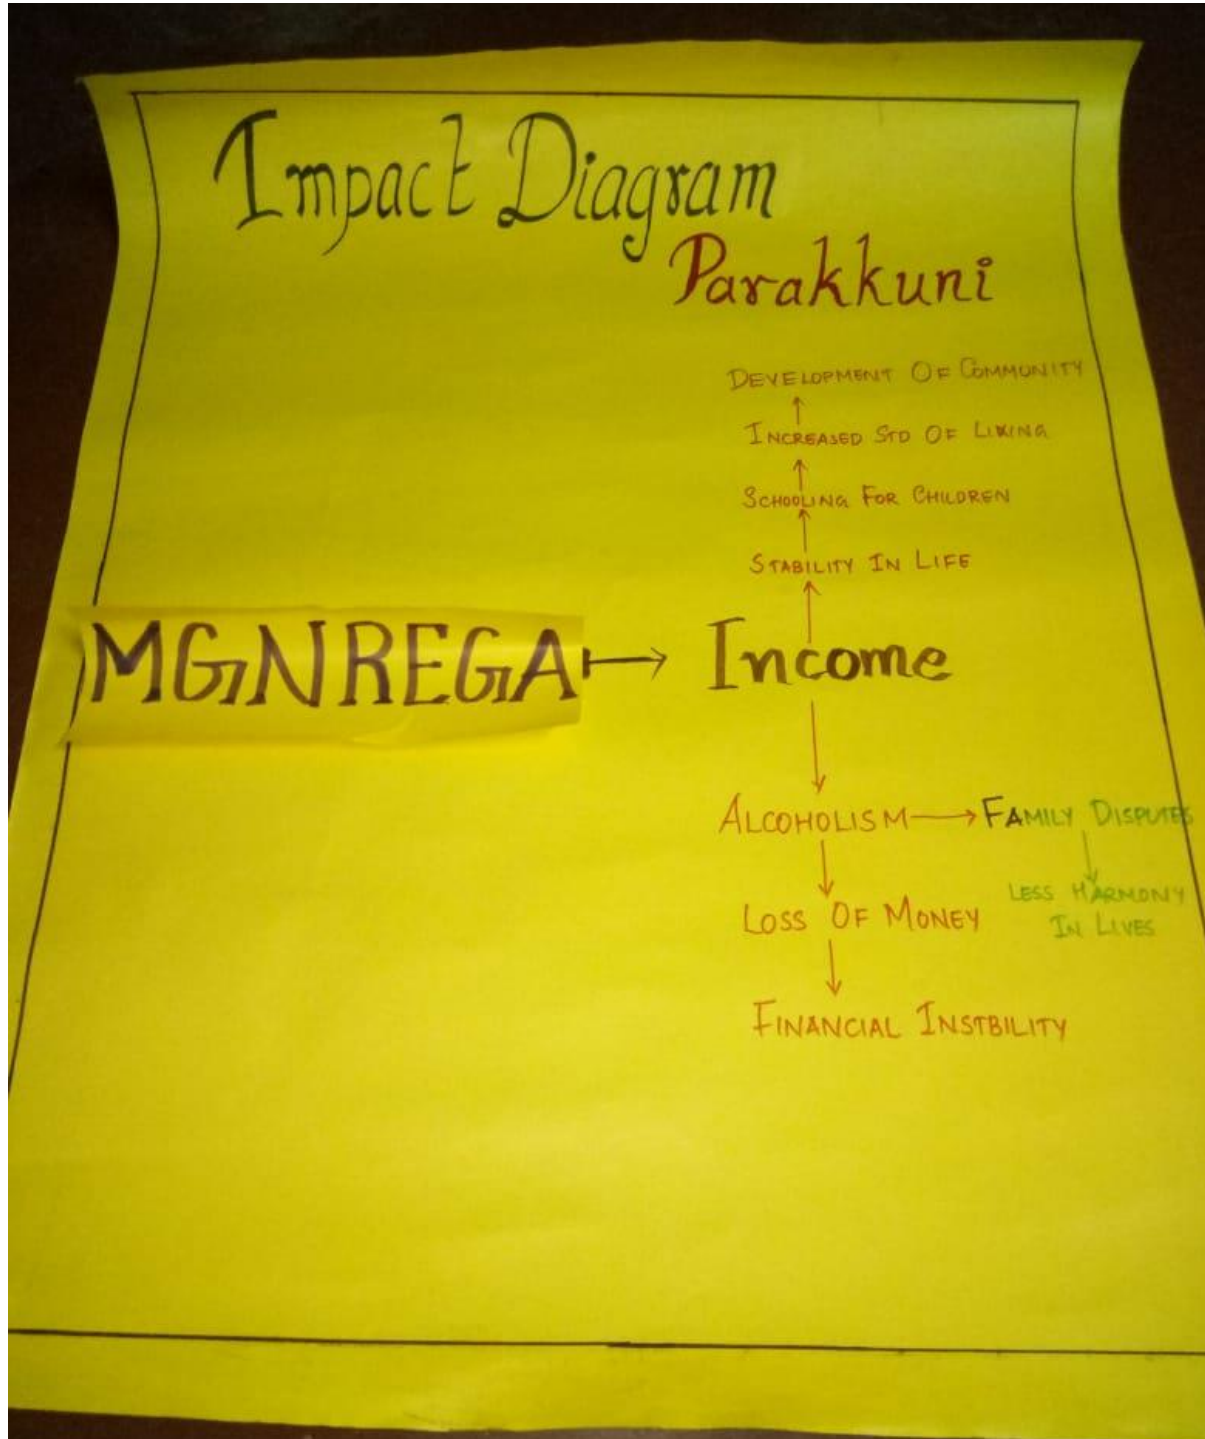 Impact Diagram
Parakkuni
DEVELOPMENT OF COMMUNITY
INCREASED STD OF LIVING
SCHOOLING FOR CHILDREN
STABILITY IN LIFE
MGNREGA → Income
ALCOHOLISM → FAMILY DISPUTES
LOSS OF MONEY
LESS HARMONY
IN LIVES
FINANCIAL INSTBILITY